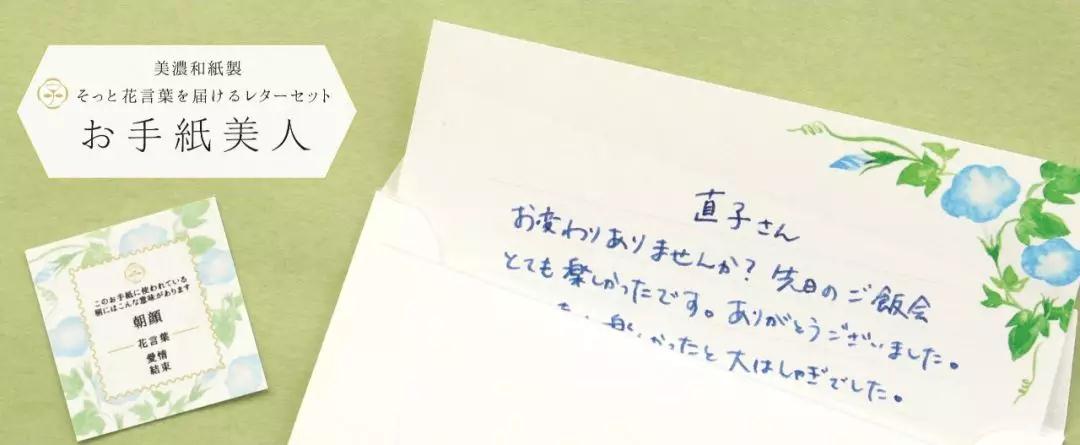 美濃和紙製
そっと花言葉を届けるレターセット
お手紙美人
このお手紙に使われている
柄にはこんな意味があります
朝顔
花言葉
愛情
結束
直子さん
お変わりありませんか? 先日のご飯会
とても楽しかったです。ありがとうございました。
かったと大はしゃぎでした。